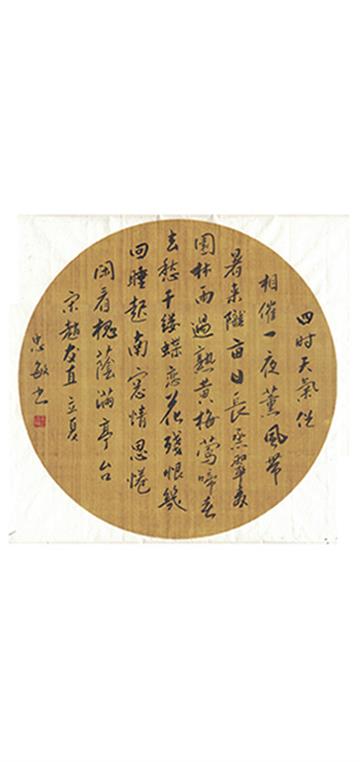 四时天氣促
相催一夜薰風带
暑来隴亩日長蒸翠麦
園林雨過熟黄梅莺啼春
去愁千缕蝶恋花残恨幾
回睡起南窓情思惓
闲看槐蔭满亭台
宋趙友直立夏
忠敏书